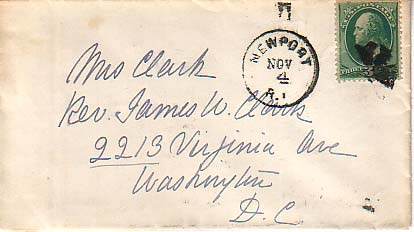 NEWPORT
NOV
4
R.I.
Mrs Clark
Rev. James W. Clark
2213 Virginia Ave
Washington
D.C